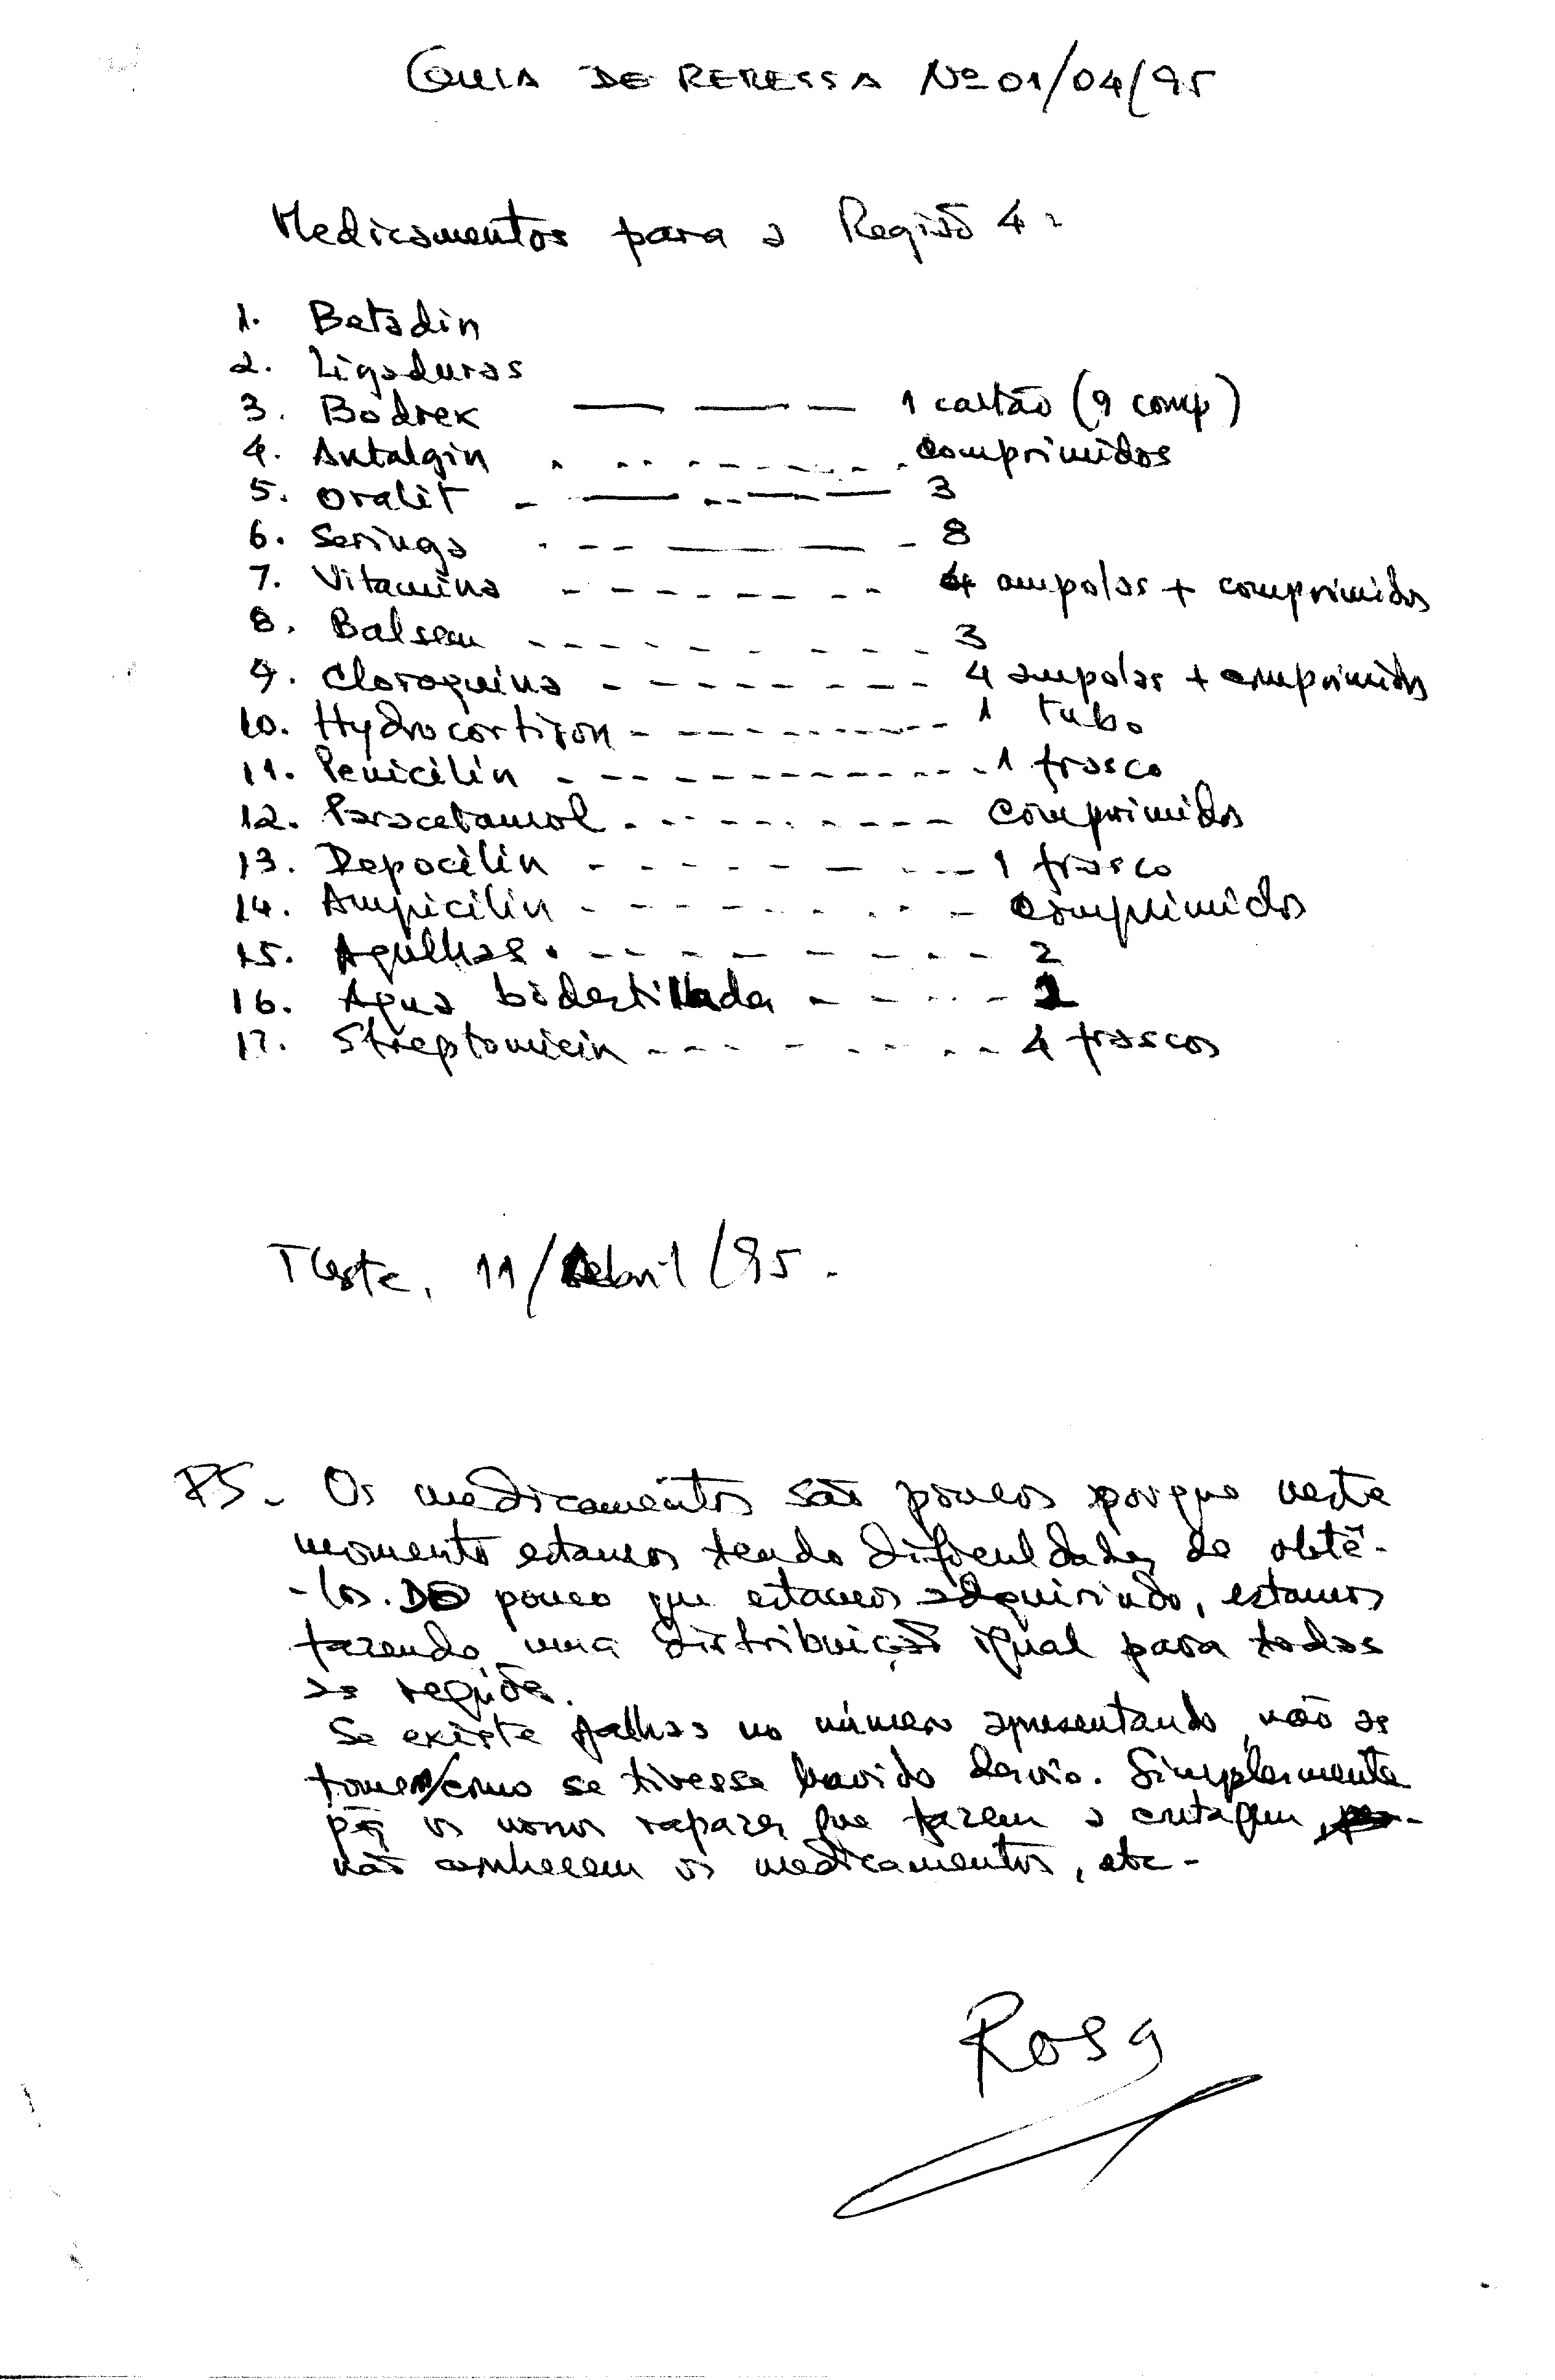 GUIA DE REMESSA Nº 01/04/95
Medicamentos para a Região 4:
1. Betadin
2. Ligaduras
3. Bodrex — — — 1 cartão (9 comp)
4. Antalgin . . . - - - - - - . comprimidos
5. Oralit - — — - - — — 3
6. Seringa . - - — — - 8
7. Vitamina - - - - - - - - 4 ampolas + comprimidos
8. Balsem - - - - - - - - - - 3
9. Cloroquina - - - - - - - - 4 ampolas + comprimidos
10. Hydrocortizon - - - - - - - - - - 1 tubo
11. Penicilin - - - - - - - - - - - - 1 frasco
12. Paracetamol - - - - - - - - - - comprimidos
13. Depocilin - - - - - - - - - - 1 frasco
14. Ampicilin - - - - - - - - - - comprimidos
15. Agulhas . - - - - - - - - - 2
16. Agua bidestillada - - - - - 1
17. Streptomicin - - - - - - - - - 4 frascos
TLeste, 11/Abril/95.
PS - Os medicamentos são poucos porque neste
momento estamos tendo dificuldades de obtê-
-los. Do pouco que estamos adquirindo, estamos
fazendo uma distribuição igual para todas
as regiões.
Se existe falhas no número apresentando, não as
tomem/como se tivesse havido desvio. Simplesmente
pq os nossos rapazes que fazem a contagem,
não conhecem os medicamentos, etc -
Rosa